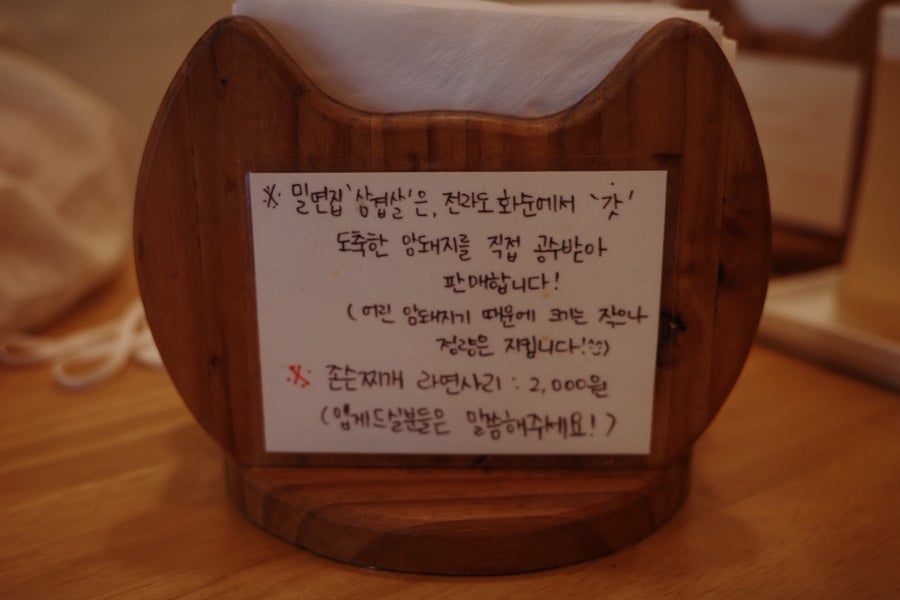 ※ 밀면집 '삼겹살'은, 전라도 화순에서 '갓'
도축한 암돼지를 직접 공수받아
판매합니다!
(어린 암돼지기 때문에 크기는 작으나
정량은 지킵니다!)
※ 존슨찌개 라면사리 : 2,000원
(맵게드실분들은 말씀해주세요!)